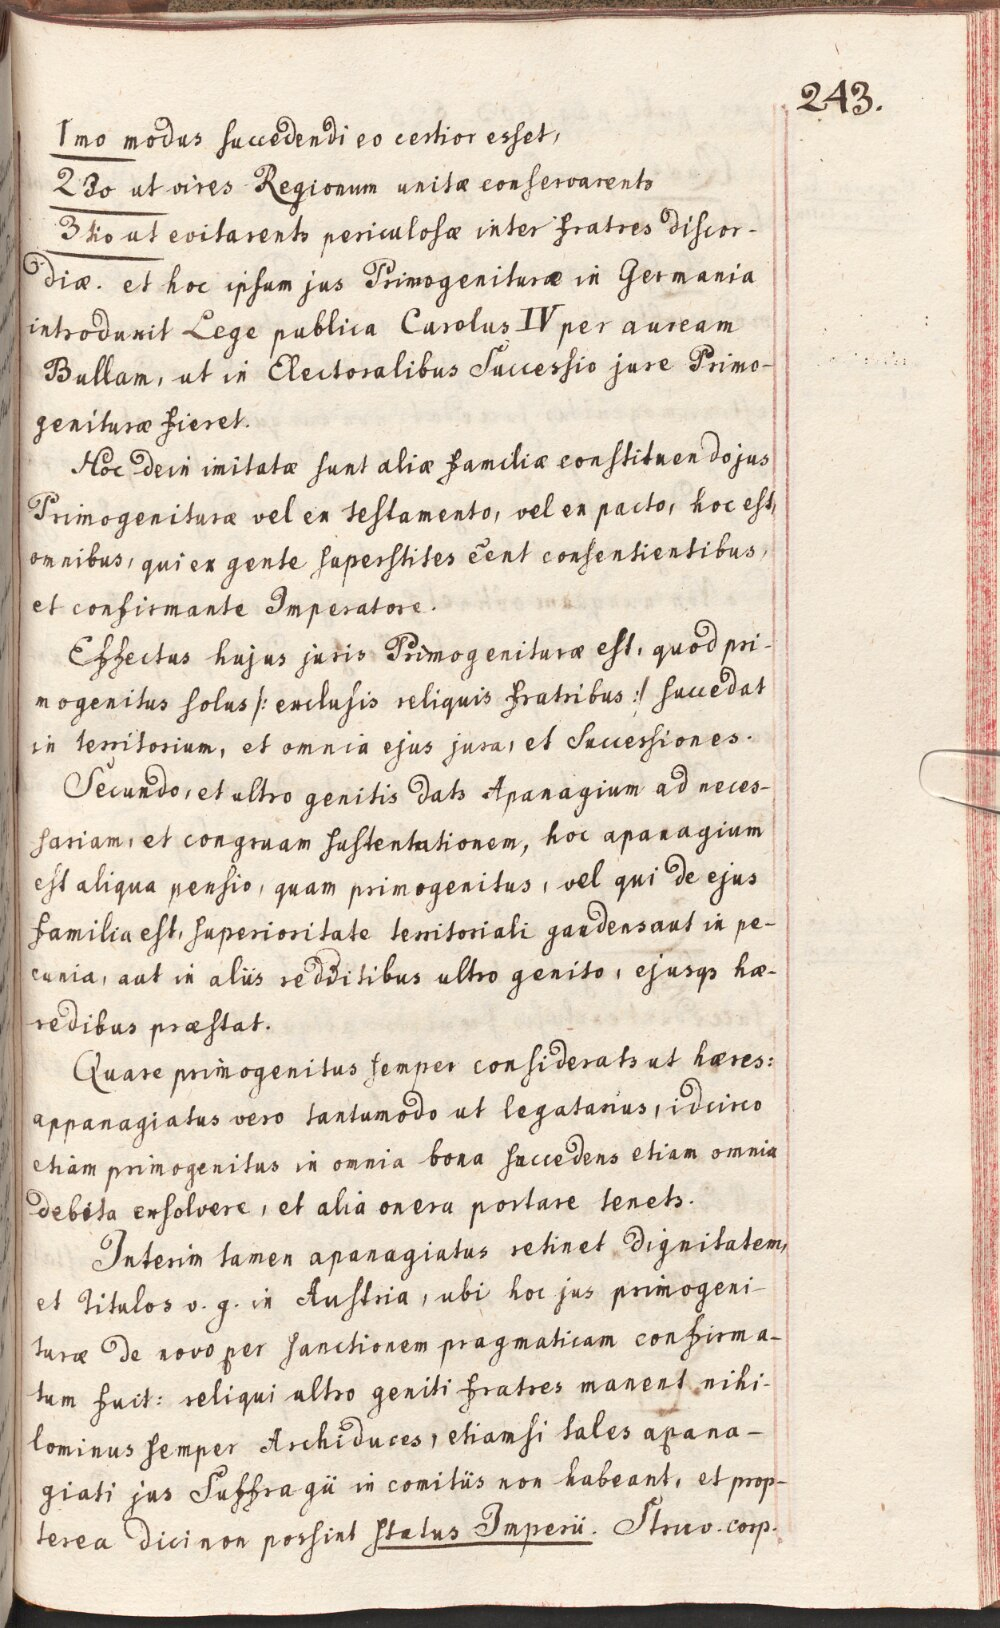 243.
1mo modus succedendi eo certior esset,
2do ut vires Regionum unitæ conservarents
3tio ut evitarents periculosæ inter fratres discor-
diæ. et hoc ipsum jus Primogenituræ in Germania
introduxit Lege publica Carolus IV per auream
Bullam, ut in Electoralibus Successio jure Primo-
genituræ fieret.
Hoc dein imitatæ sunt aliæ familiæ constituendo jus
Primogenituræ vel ex testamento, vel ex pacto, hoc est,
omnibus, qui ex gente superstites eēnt consentientibus,
et confirmante Imperatore.
Effectus hujus juris Primogenituræ est, quod pri-
mogenitus solus /: exclusis reliquis fratribus :/ succedat
in territorium, et omnia ejus jura, et Successiones.
Secundo, et ultro genitis dats Apanagium ad neces-
sariam, et congruam sustentationem, hoc apanagium
est aliqua pensio, quam primogenitus, vel qui de ejus
familia est, superioritate territoriali gaudens aut in pe-
cunia, aut in aliis redditibus ultro genito, ejusqs hæ-
redibus præstat.
Quare primogenitus semper considerats ut hæres:
appanagiatus vero tantumodo ut legatarius, idcirco
etiam primogenitus in omnia bona succedens etiam omnia
debita exsolvere, et alia onera portare tenets.
Interim tamen apanagiatus retinet dignitatem,
et titulos v. g. in Austria, ubi hoc jus primogeni-
turæ de novo per sanctionem pragmaticam confirma-
tum fuit: reliqui ultro geniti fratres manent nihi-
lominus semper Archiduces, etiamsi tales apana-
giati jus Suffragii in comitiis non habeant, et prop-
terea dici non possint status Imperii. Struv. corp.